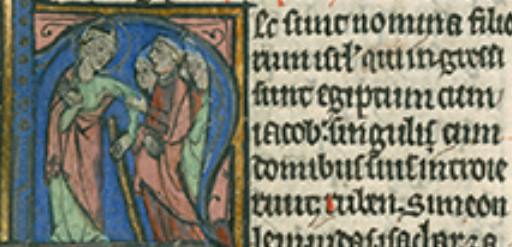 ec sunt nomina filio
rum isrl' qui ingressi
sunt egiptum cum
iacob: singulis cum
domibus suis introie
runt; ruben. Simeon
leui iudas isachar za